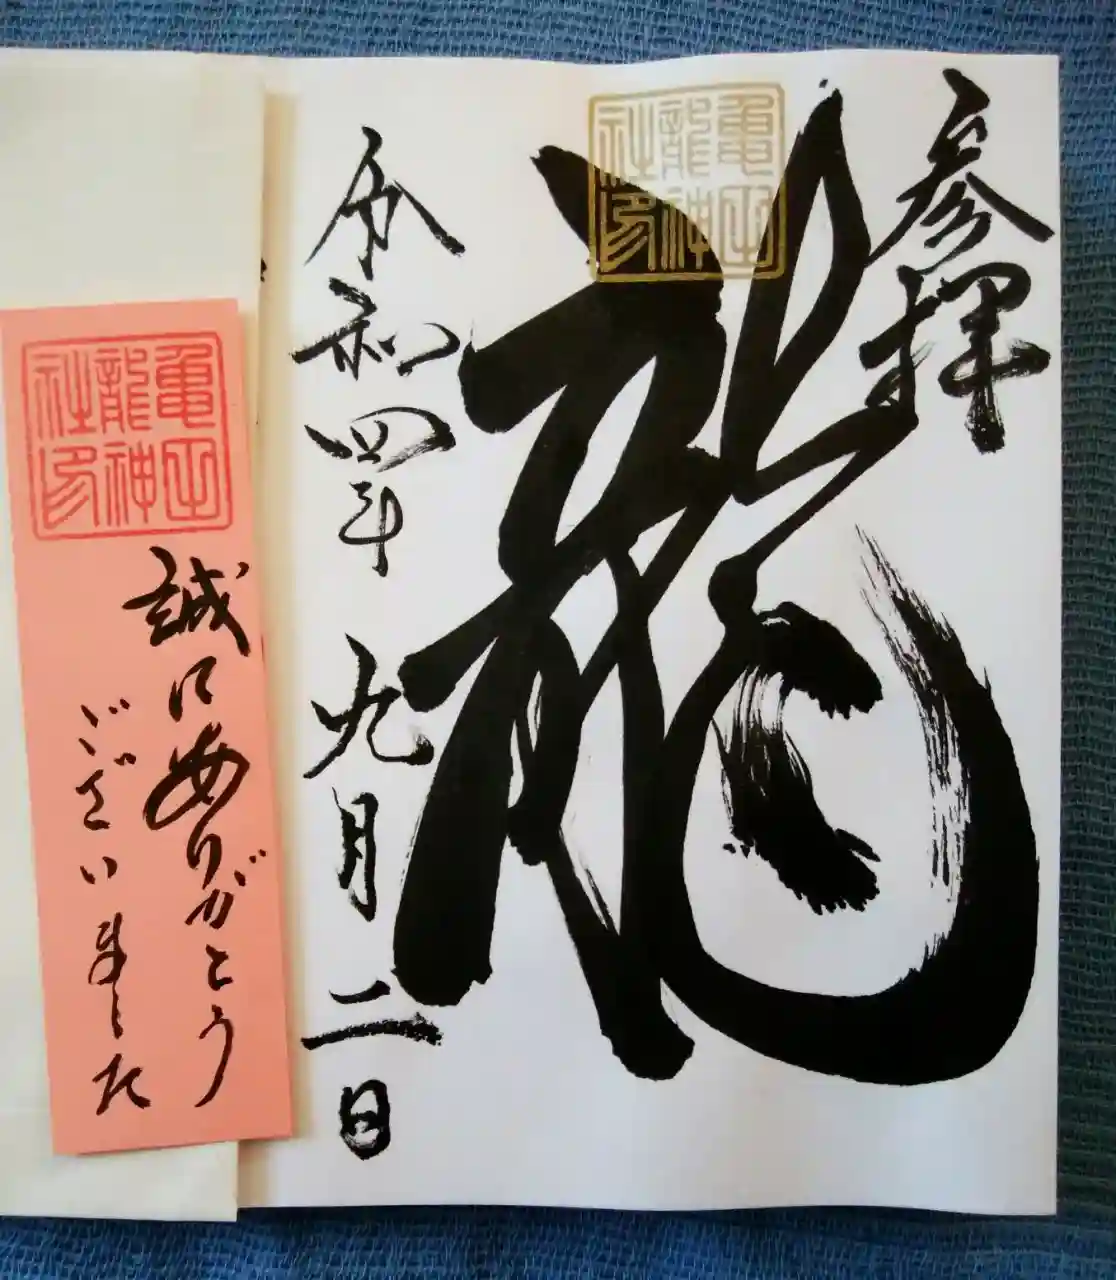 参拝
龍
龍神
社印
令和四年 九月二日
龍神
社印
誠にありがとう
ございました